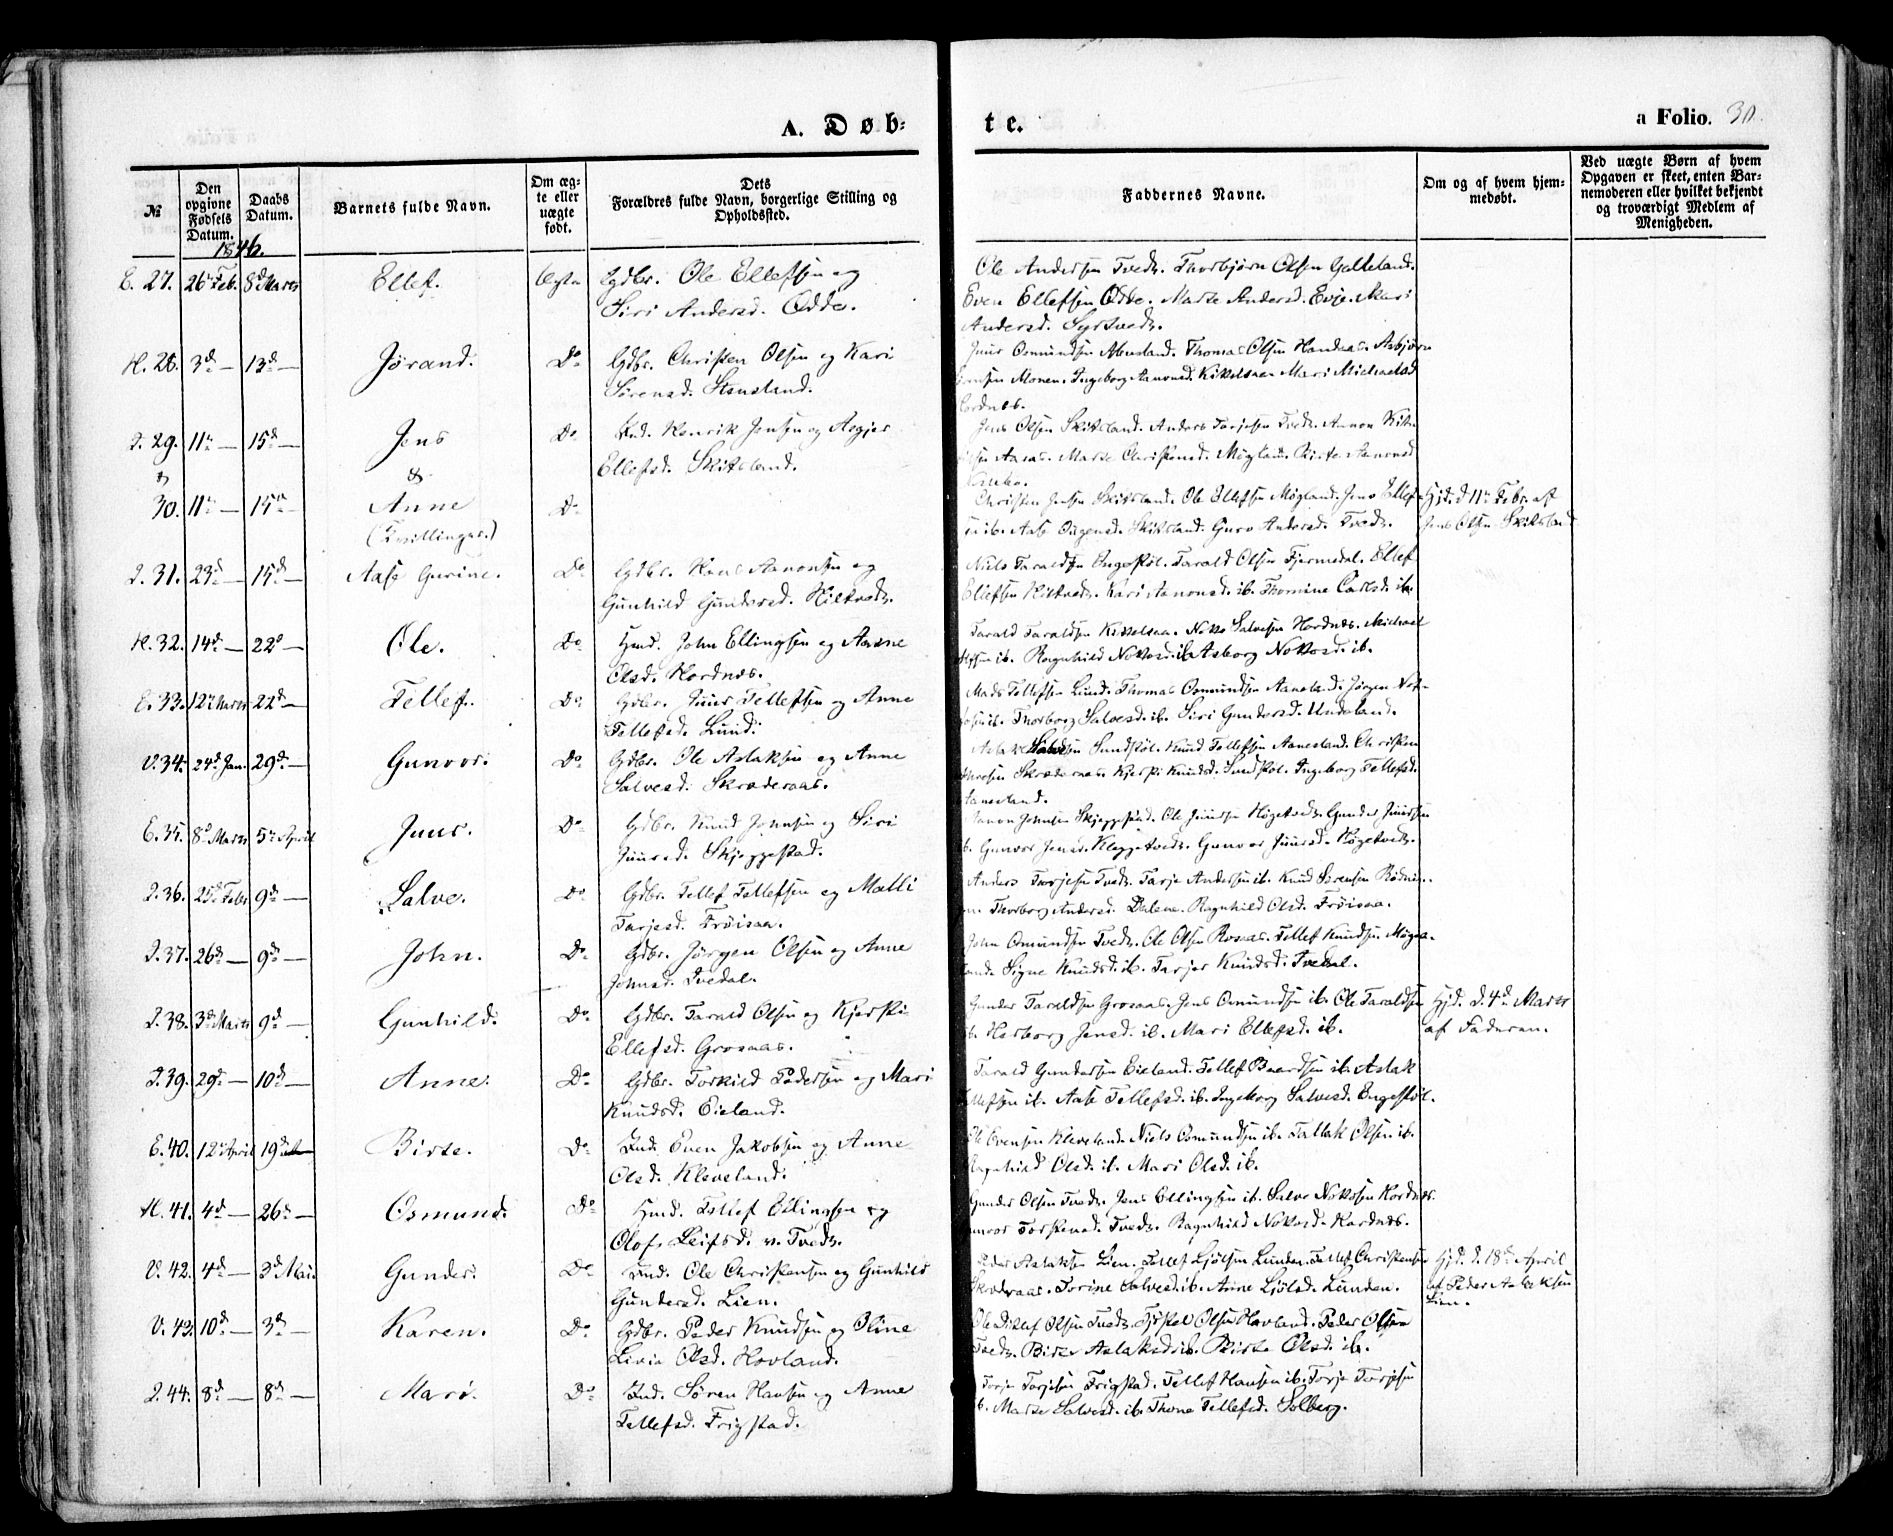 A. Døb-
te.
a Folio. 30.
№
Den opgivne Fødsels Datum.
Daabs Datum.
Barnets fulde Navn.
Om ægte eller uægte født.
Dets Forældres fulde Navn, borgerlige Stilling og Opholdssted.
Faddernes Navne.
Om og af hvem hjemmedøbt.
Ved uægte Børn af hvem Opgaven er skeet, enten Barnemoderen eller hvilket bekjendt og troværdigt Medlem af Menigheden.
1846.
E. 27. 26de Feb. 8d Marts Ellef. Ægte Gdbr. Ole Ellefsen og
Siri Andersd. Odde.
Ole Andersen Tvedt. Thorbjørn Olsen Galteland.
Even Ellefsen Odde. Marte Andersd. Evje. Mari
Andersd. Syrtvedt.
H. 28. 3d — 13d — Jørand. Do Gdbr. Christen Olsen og Kari
Sørensd. Stensland.
Juur Osmundsen Abusland. Thomas Olsen Handaas. Asbjørn
Monen. Ingeborg Aanonsd. Kittelsaa. Mari Michaelsd
Hordnes.
I. 29. 11te — 15d — Jens Do Ind. Henrik Jensen og Asgjer
Ellefsd. Skitsland.
Jens Olsen Skitsland. Anders Tarjesen Tvedt. Aanon
Aasas. Marte Christensd. Møgland. Birte Aanonsd
& &
30. 11te — 15de — Anne Do
(Tvillinger.)
Christen Jensen Skitsland. Ole Ellefsen Møgland. Jens Ellef-
sen ib. Aase Skitsland. Guro Andersd. Tvedt.
Hjd. d 11te Febr. af
Jens Olsen Skitsland
I. 31. 23d — 15d — Aase Gurine. Do Gdbr. Hans Aanonsen og
Gunhild Gundersd. Hiltvedt.
Niels Taraldsen Engeskøl. Tarald Olsen Fjermedal. Ellef
Ellefsen Hiltvedt. Kari Aanonsd. ib. Thomine Carlsd. ib.
H. 32. 14d — 22d — Ole. Do Hmd. John Ellingsen og Aasne
Olsd. Hordnes.
Tarald Taraldsen Kittelsaa. Notto Salvesen Hordnes. Michael
ib. Ragnhild Nottosd. ib. Asborg Nottosd. ib.
E. 33. 12te Marts 22d — Tellef. Do Gdbr. Juur Tellefsen og Anne
Tellefsd. Lund.
Mads Tellefsen Lund. Thomas Osmundsen Aanesland. Jørgen Not-
tosen ib. Thorborg Salvesd. ib. Siri Gundersd. Undeland.
V. 34. 24d Jan. 29d — Gunvor. Do Gdbr. Ole Aslaksen og Anne
Salvesd. Skræderaas.
Aslak Salvesen Sundskøl. Knud Tellefsen Aanesland. Christen
Skræderaas. Kjersti Knudsd. Sundskøl. Ingeborg Tellefsd.
Aanesland.
E. 35. 8d Marts 5te April Juur. Do Gdbr. Knud Johnsen og Siri
Juursd. Skjeggestad.
Aanon Johnsen Skjeggestad. Ole Juursen Høgetvedt. Gunder Juursen
ib. Gunvor Jensd. Kleggetvedt. Gunvor Juursd. Høgetvedt.
I. 36. 25de Febr 9d — Salve. Do Gdbr. Tellef Tellefsen og Malli
Tarjesd. Frøisaa.
Anders Tarjesen Tvedt. Tarje Andersen ib. Knud Sørensen
Thorborg Andersd. Dalene. Ragnhild Olsd. Frøisaa.
I. 37. 26d — 9d — John. Do Gdbr. Jørgen Olsen og Anne
Johnsd. Ivedal.
John Omundsen Tvedt. Ole Olsen Rosaas. Tellef Knudsen Møge-
land. Signe Knudsd. ib. Tarjer Knudsd. Ivedal.
I. 38. 3d Marts 9d — Gunhild. Do Gdbr. Tarald Olsen og Kjersti
Ellefsd. Grosaas.
Gunder Taraldsen Grosaas. Jens Omundsen ib. Ole Taraldsen
ib. Herborg Jensd. ib. Mari Ellefsd. ib.
Hjd. d. 4d Marts
af Faderen.
I. 39. 29d — 10d — Anne. Do Gdbr. Torkild Pedersen og Mari
Knudsd. Eieland.
Tarald Gundersen Eieland. Tellef Baardsen ib. Aslak
Tellefsen ib. Aase Tellefsd. ib. Ingeborg Salvesd. Engeskøl.
E. 40. 12te April 19de Birte. Do Ind. Even Jakobsen og Anne
Olsd. Kleveland.
Ole Evensen Kleveland. Niels Osmundsen ib. Tallak Olsen ib.
Ragnhild Olsd. ib. Mari Olsd. ib.
H. 41. 4d — 26de — Osmund. Do Hmd. Tellef Ellingsen og
Olof. Leifsd. v. Tvedt.
Gunder Olsen Tvedt. Jens Ellingsen ib. Salve Nottosen Hordnes.
Gunvor Torstensd. Tvedt. Ragnhild Nottosd. Hordnes.
V. 42. 4d — 3d Mai. Gunder. Do Ind. Ole Christensen og Gunhild
Gundersd. Lien.
Peder Aslaksen Lien. Tellef Ljølsen Lunden. Tellef Christensen
Skræderaas. Torine Salvesd. ib. Anne Ljølsd. Lunden.
Hjd. d. 18de April
af Peder Aslaksen
Lien.
V. 43. 10d — 3d — Karen. Do Gdbr. Peder Knudsen og Oline
Livie Olsd. Hovland.
Ole Ditlef Olsen Tvedt. Olsen Hovland. Peder Olsen
Tvedt. Birte Aslaksd. ib. Birte Olsd. ib.
I. 44. 8d — 8d — Marø. Do Ind. Søren Hansen og Anne
Tellefsd. Frigstad.
Torje Torjesen Frigstad. Tellef Hansen ib. Torje Torjesen
ib. Marte Salvesd. ib. Thone Tellefsd. Solberg.